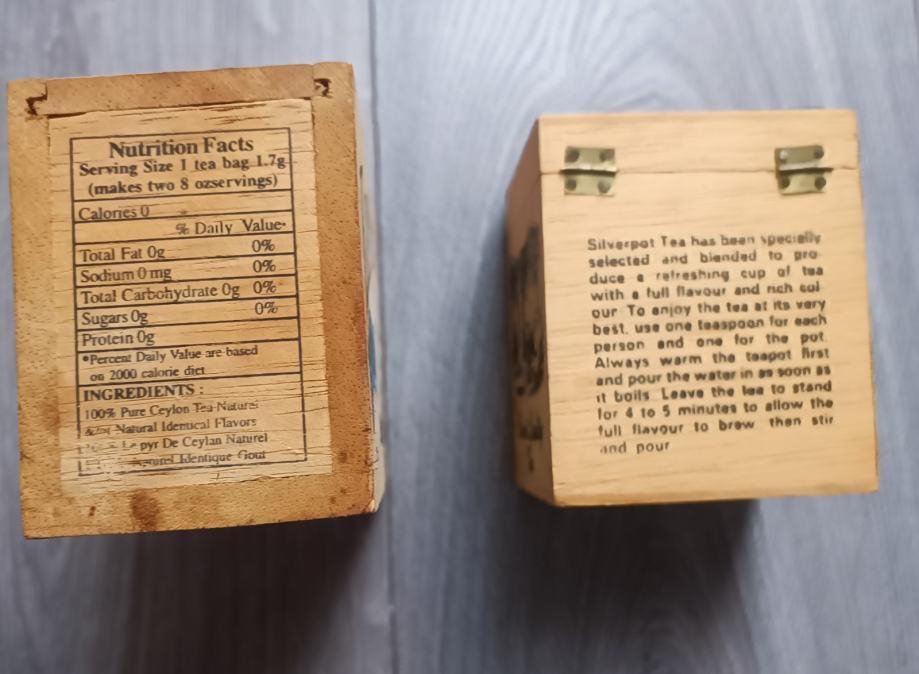 Nutrition Facts
Serving Size 1 tea bag 1.7g
(makes two 8 ozservings)
Calories 0
% Daily Value*
Total Fat 0g 0%
Sodium 0 mg 0%
Total Carbohydrate 0g 0%
Sugars 0g 0%
Protein 0g
*Percent Daily Value are based
on 2000 calorie diet
INGREDIENTS :
100% Pure Ceylon Tea Natural
Natural Identical Flavors
pyr De Ceylan Naturel
Identique Gout
Silverpot Tea has been specially
selected and blended to pro-
duce a refreshing cup of tea
with a full flavour and rich col-
our To enjoy the tea at its very
best, use one teaspoon for each
person and one for the pot.
Always warm the teapot first
and pour the water in as soon as
it boils Leave the tea to stand
for 4 to 5 minutes to allow the
full flavour to brew then stir
and pour